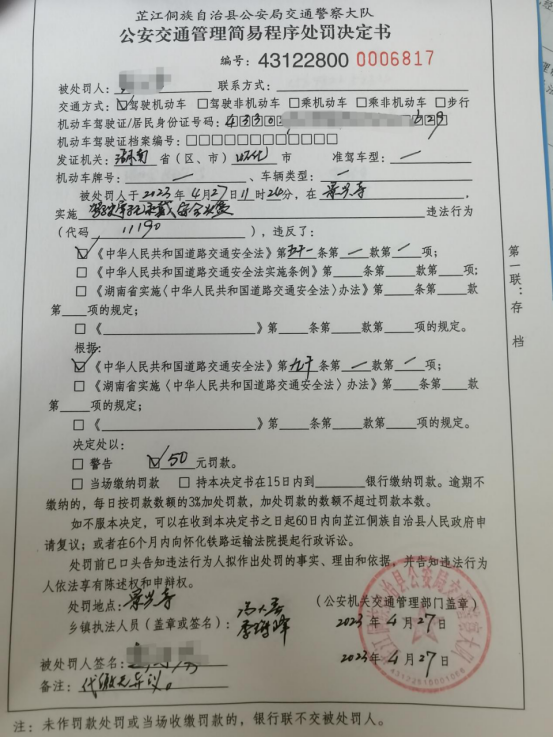 芷江侗族自治县公安局交通警察大队
公安交通管理简易程序处罚决定书
编号：43122800 0006817
被处罚人： 联系方式：
交通方式：☑驾驶机动车 □驾驶非机动车 □乘机动车 □乘非机动车 □步行
机动车驾驶证/居民身份证号码：
机动车驾驶证档案编号：□□□□□□□□□□□□
发证机关：湖南 省（区、市）怀化 市 准驾车型：一
机动车牌号：一 车辆类型：一
被处罚人于2023年4月27日11时24分，在
实施 安全头盔 违法行为
（代码 11190 ），违反了：
☑《中华人民共和国道路交通安全法》第五十一条第一款第一项；
□《中华人民共和国道路交通安全法实施条例》第 条第 款第 项；
□《湖南省实施〈中华人民共和国道路交通安全法〉办法》第 条第 款
第 项的规定；
□《 》第 条第 款第 项的规定。
根据：
☑《中华人民共和国道路交通安全法》第九十条第一款第一项；
□《湖南省实施〈中华人民共和国道路交通安全法〉办法》第 条第 款
第 项的规定；
□《 》第 条第 款第 项的规定。
决定处以：
□ 警告 ☑ 50 元罚款。
□ 当场缴纳罚款 □ 持本决定书在15日内到 银行缴纳罚款。逾期不
缴纳的，每日按罚款数额的3%加处罚款，加处罚款的数额不超过罚款本数。
如不服本决定，可以在收到本决定书之日起60日内向芷江侗族自治县人民政府申
请复议；或者在6个月内向怀化铁路运输法院提起行政诉讼。
处罚前已口头告知违法行为人拟作出处罚的事实、理由和依据，并告知违法行为
人依法享有陈述权和申辩权。
处罚地点： （公安机关交通管理部门盖章）
乡镇执法人员（盖章或签名）： 2023年4月27日
被处罚人签名： 2023年4月27日
备注：代缴无异议。
第一联：存档
注：未作罚款处罚或当场收缴罚款的，银行联不交被处罚人。